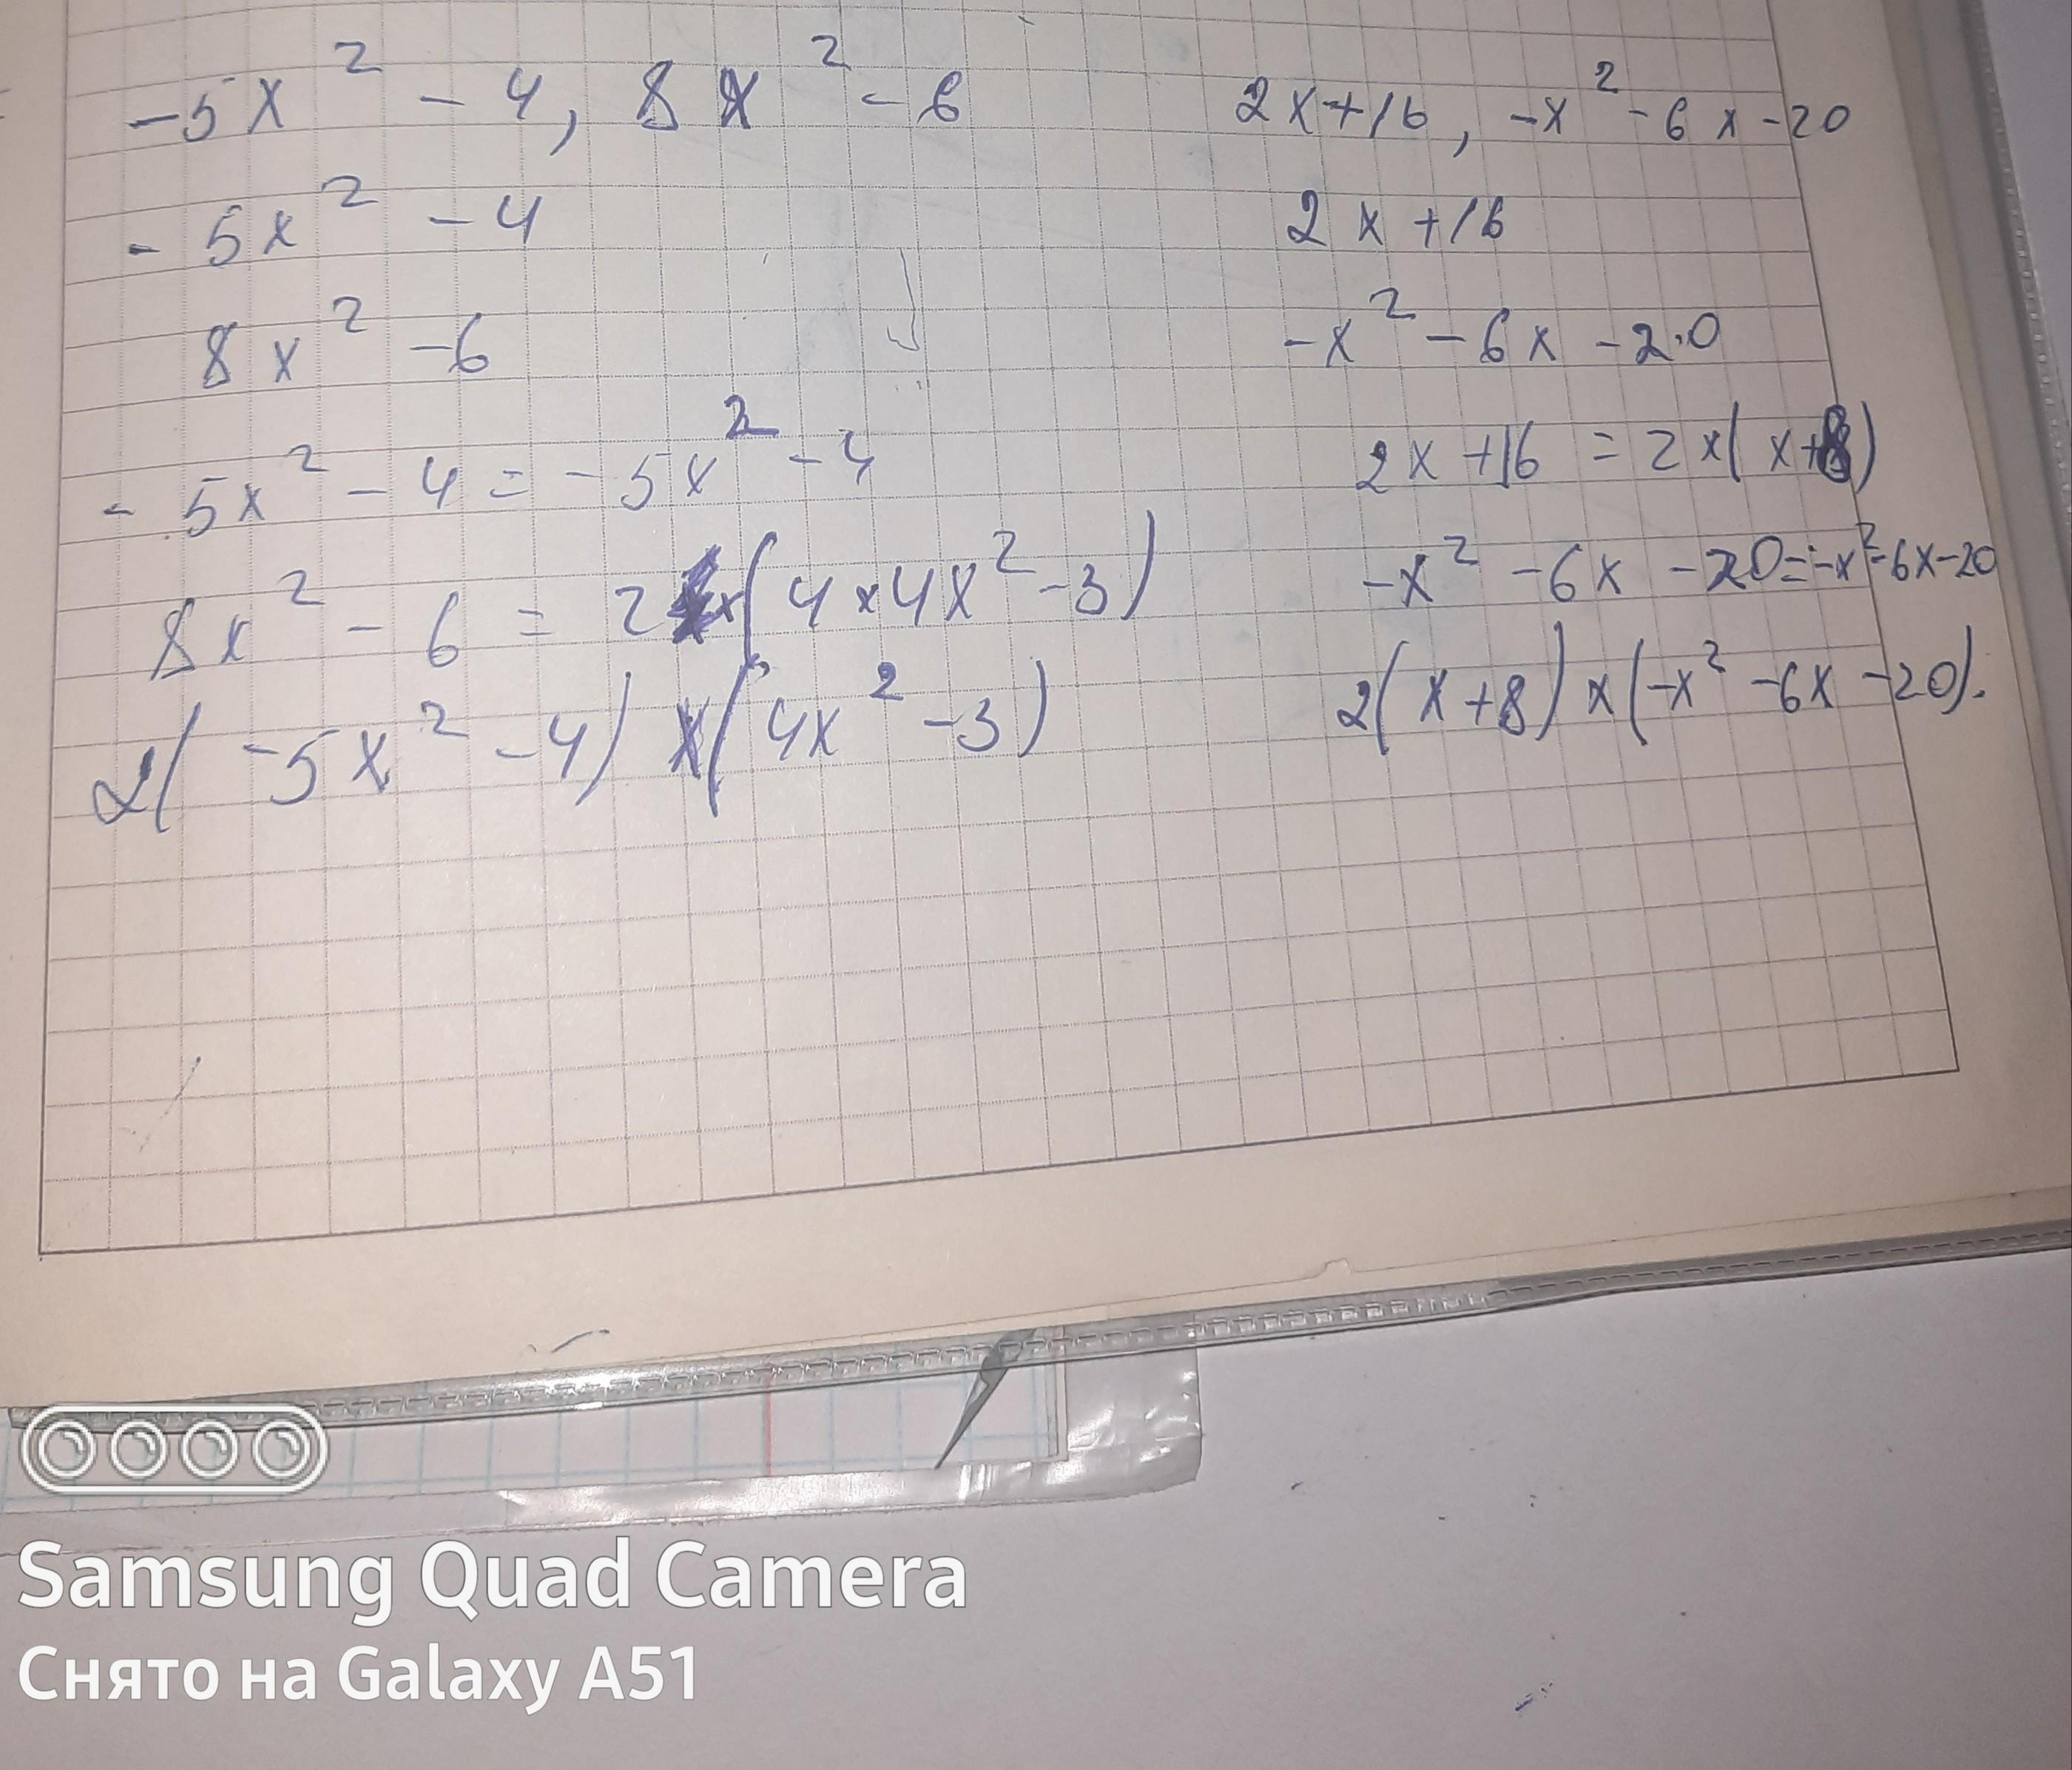 -5x² - 4, 8x² - 6
- 5x² - 4
8x² - 6
- 5x² - 4 = -5x² - 4
8x² - 6 = 2x(4x4x² - 3)
2(-5x² - 4) x (4x² - 3)
2x+16, -x² - 6x - 20
2x + 16
-x² - 6x - 2.0
2x + 16 = 2x(x+8)
-x² - 6x - 20 = -x² - 6x - 20
2(x+8) x (-x² - 6x - 20).
Samsung Quad Camera
Снято на Galaxy A51